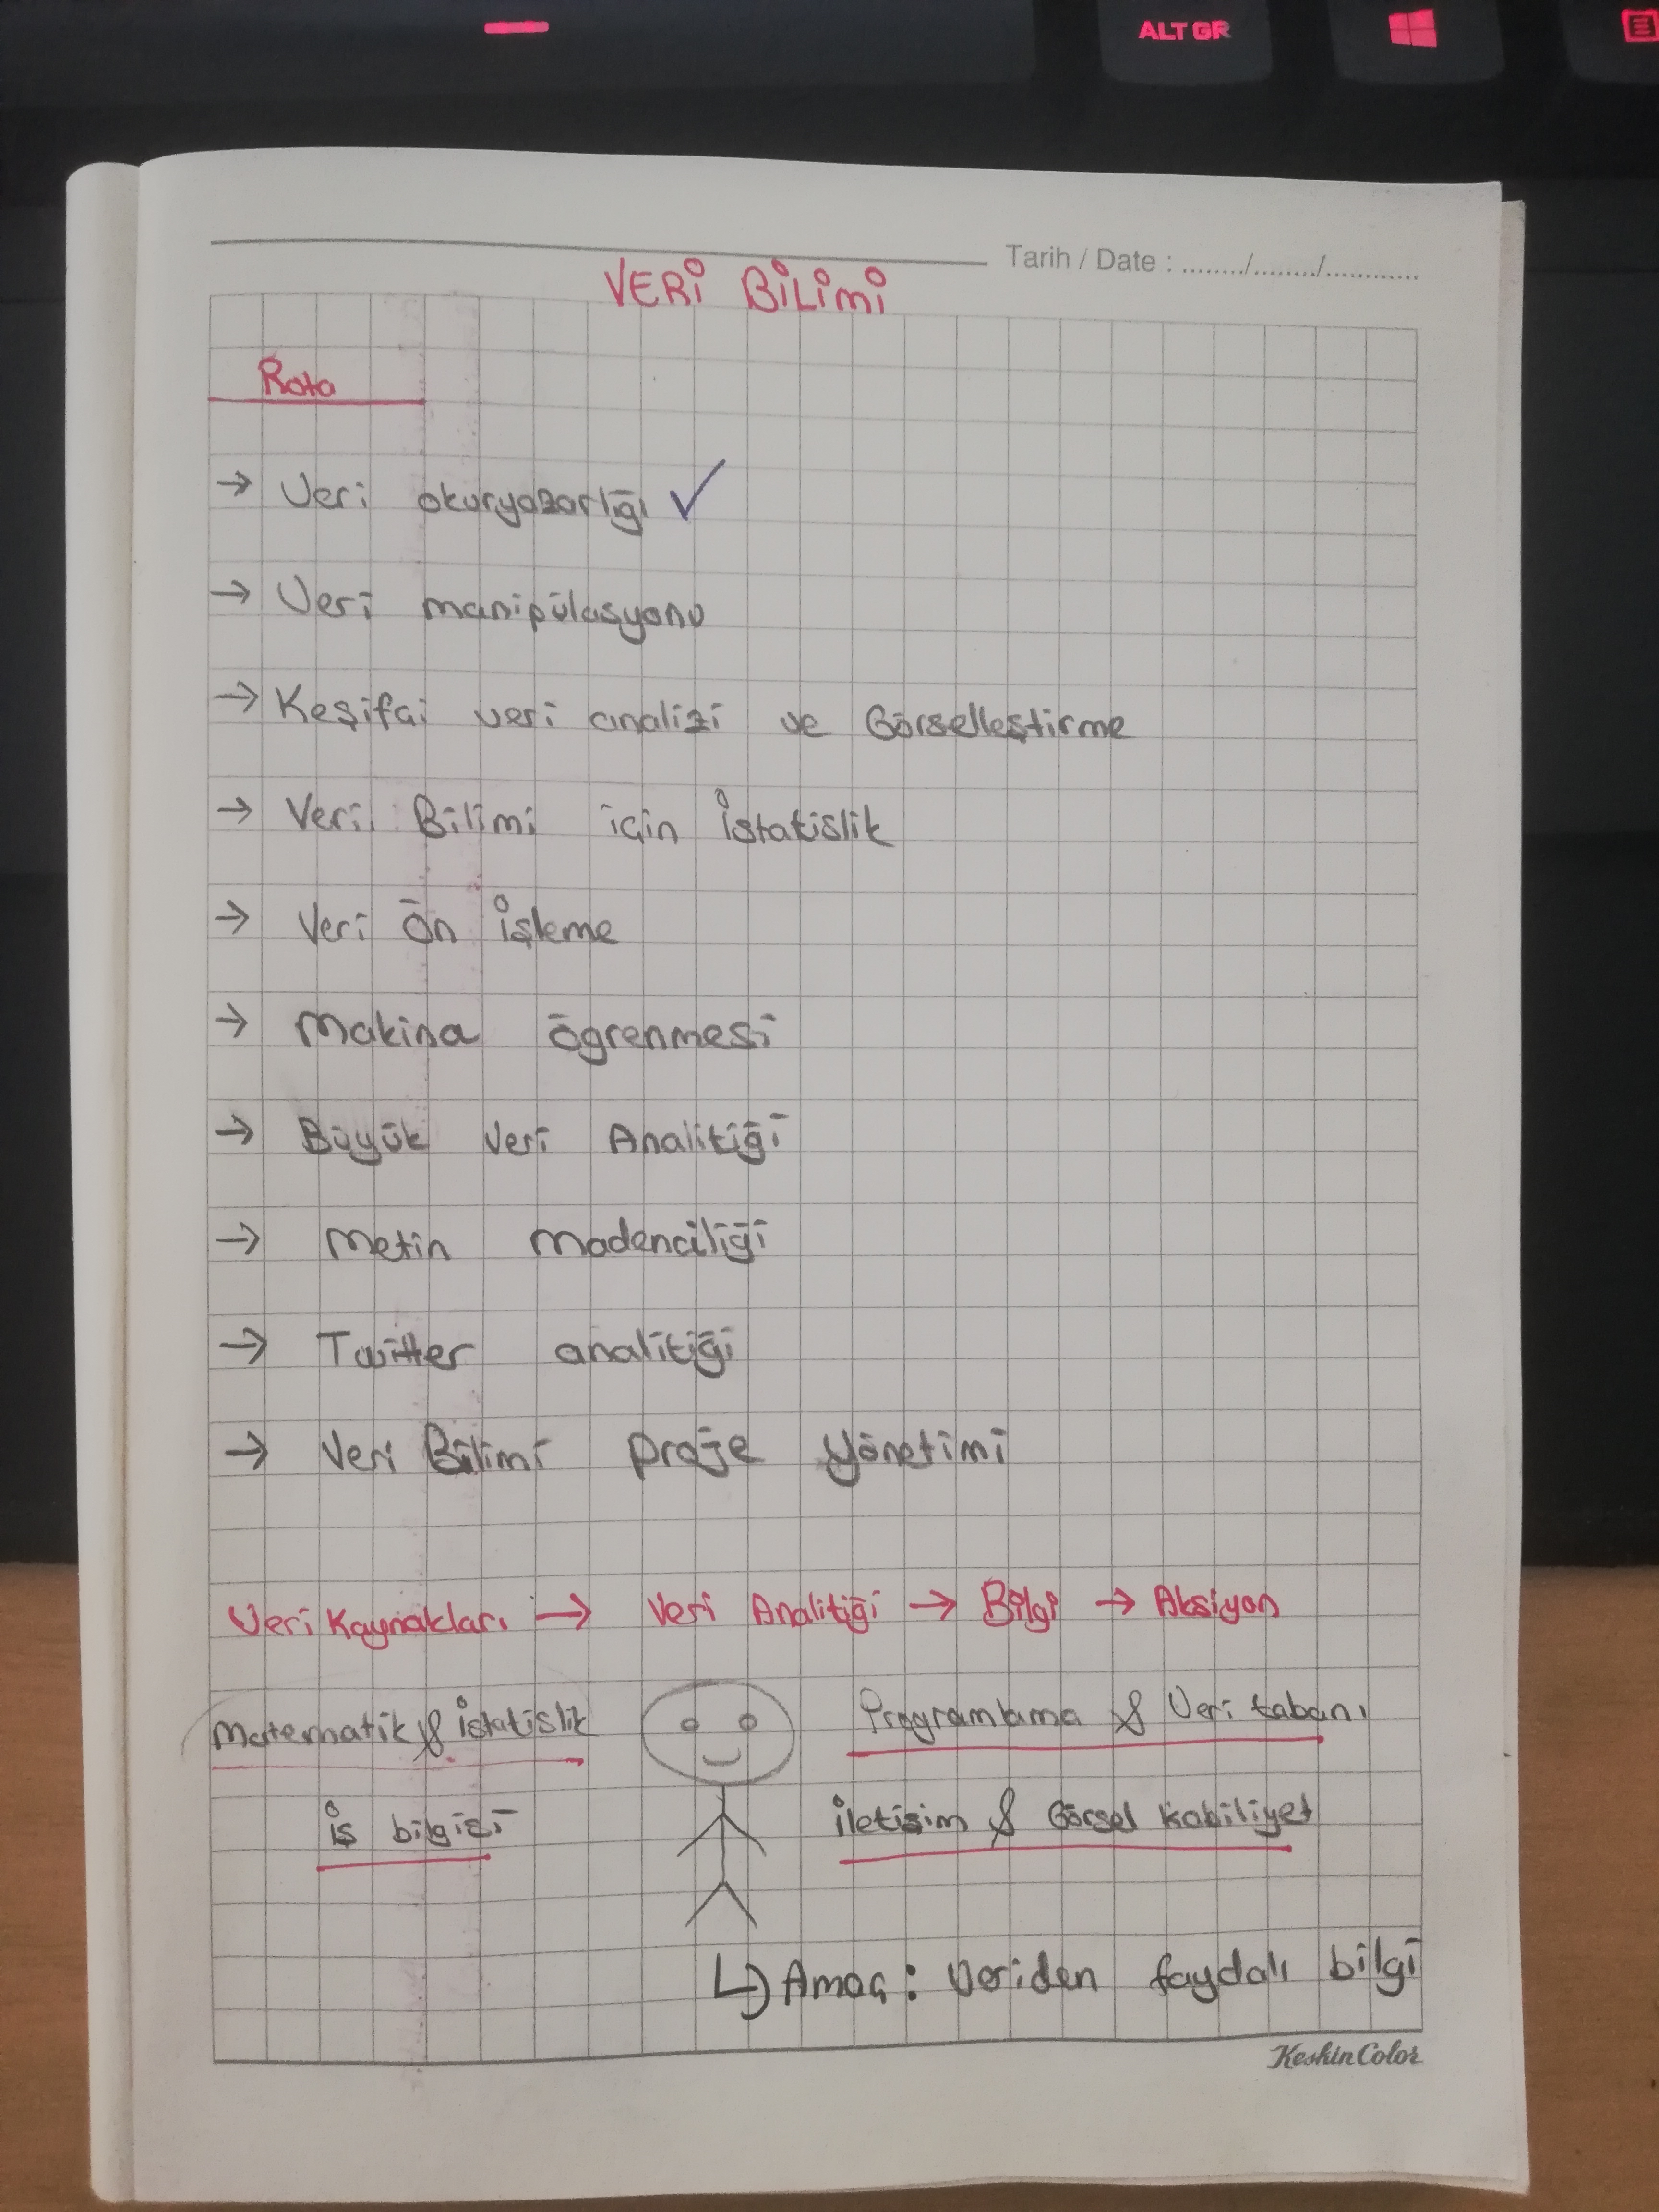 ALT GR
Tarih / Date : ......../......../............
VERİ BİLİMİ
Rota
→ Veri okuryazarlığı ✓
→ Veri manipülasyonu
→ Keşifai veri analizi ve Görselleştirme
→ Veri Bilimi için İstatislik
→ Veri Ön İşleme
→ Makina öğrenmesi
→ Büyük Veri Analitiği
→ Metin Madenciliği
→ Twitter analitiği
→ Veri Bilimi proje yönetimi
Veri Kaynakları → Veri Analitiği → Bilgi → Aksiyon
Matematik & İstatislik Programlama & Veri tabanı
İş bilgisi İletişim & Görsel kabiliyet
↳ Amaç : Veriden faydalı bilgi
KeskinColor